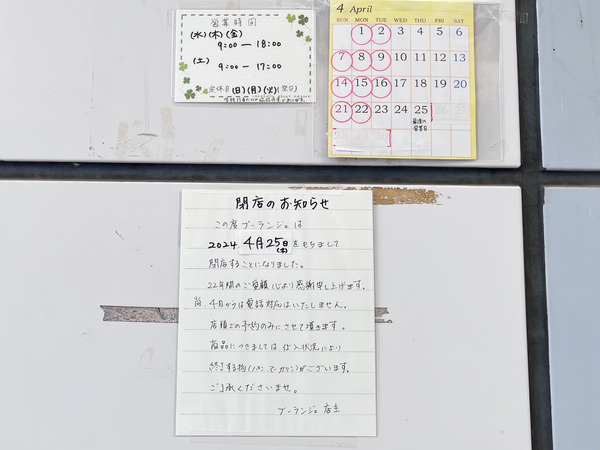 営業時間
(水)(木)(金)
9:00 — 18:00
(土)
9:00 — 17:00
定休日(日)(月)(火)(祭日)
4 April
SUN MON TUE WED THU FRI SAT
1 2 3 4 5 6
7 8 9 10 11 12 13
14 15 16 17 18 19 20
21 22 23 24 25 26 27
最後の
営業日
閉店のお知らせ
この度ブーランジェは
2024.4月25日(木)をもちまして
閉店することになりました。
22年間のご愛顧心より感謝申し上げます。
尚、4月からは電話対応はいたしません。
店頭での予約のみにさせて頂きます。
商品につきましては仕入状況により
終了する物(パン、マーガリン)がございます。
ご了承くださいませ。
ブーランジェ 店主